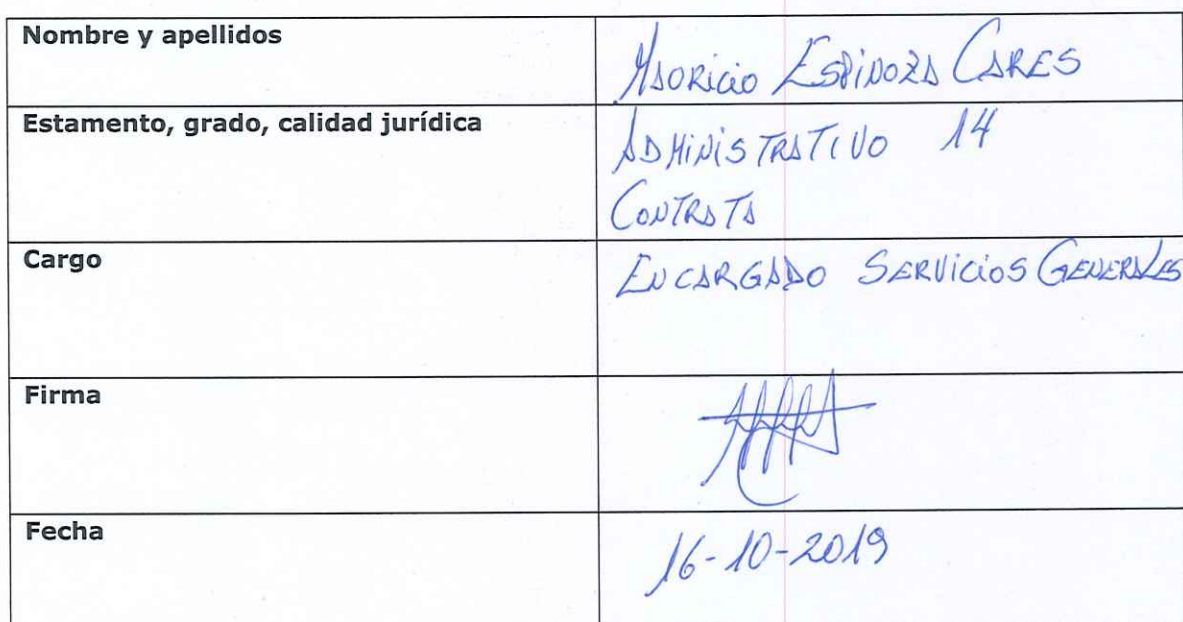 Nombre y apellidos
Mauricio Espinoza Cares
Estamento, grado, calidad jurídica
ADMINISTRATIVO 14
CONTRATA
Cargo
ENCARGADO SERVICIOS GENERALES
Firma
Fecha
16-10-2019